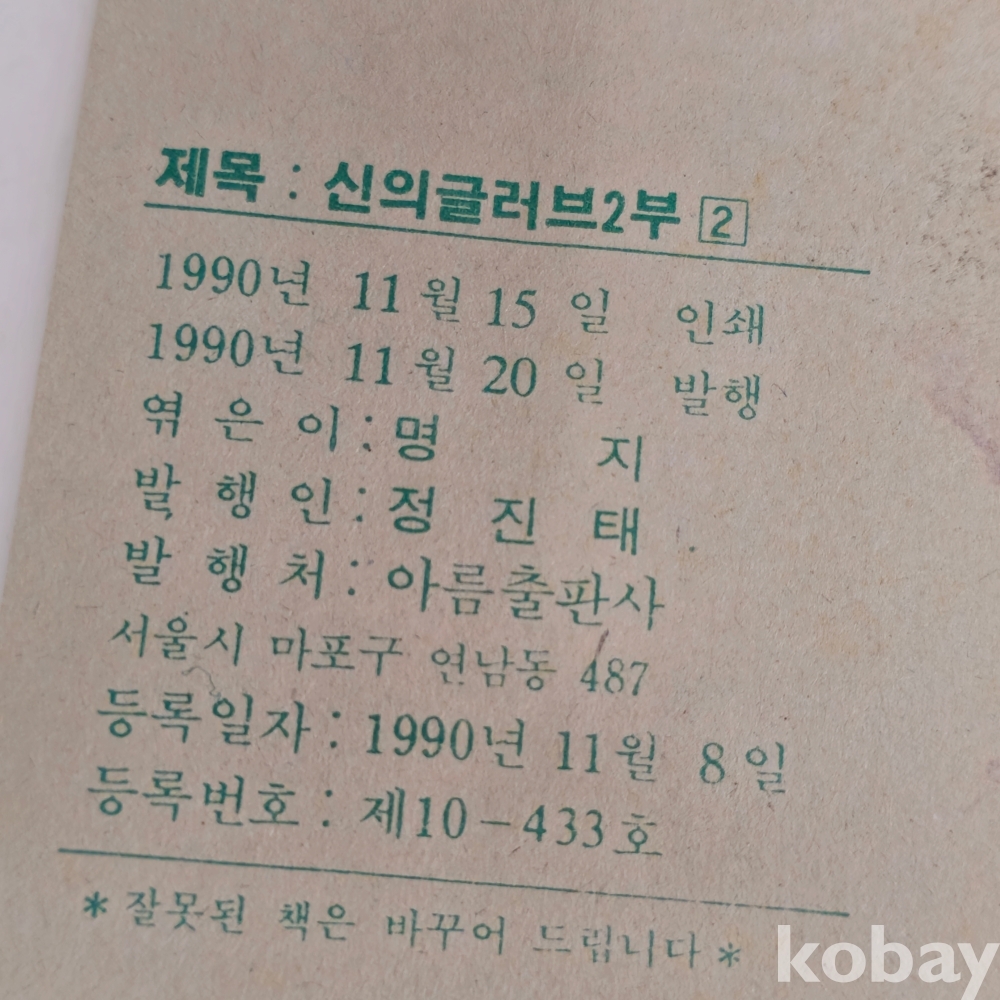 제목 : 신의글러브2부 2
1990년 11월 15일 인쇄
1990년 11월 20일 발행
엮은이 : 명 지
발행인 : 정 진 태
발행처 : 아름출판사
서울시 마포구 연남동 487
등록일자 : 1990년 11월 8일
등록번호 : 제10-433호
* 잘못된 책은 바꾸어 드립니다 *
kobay